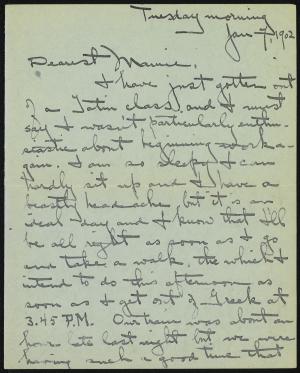 Tuesday morning
Jan 7, 1902
Dearest Mamie,
I have just gotten out
of a Latin class, and I must
say I wasn't particularly enthu-
siastic about beginning work a-
gain. I am so sleepy I can
hardly sit up and I have a
beastly headache but it is an
ideal day and I know that I'll
be all right as soon as I go
and take a walk, the which I
intend to do this afternoon as
soon as I get out of Greek at
3.45 P.M. Our train was about an
hour late last night but we were
having such a good time that